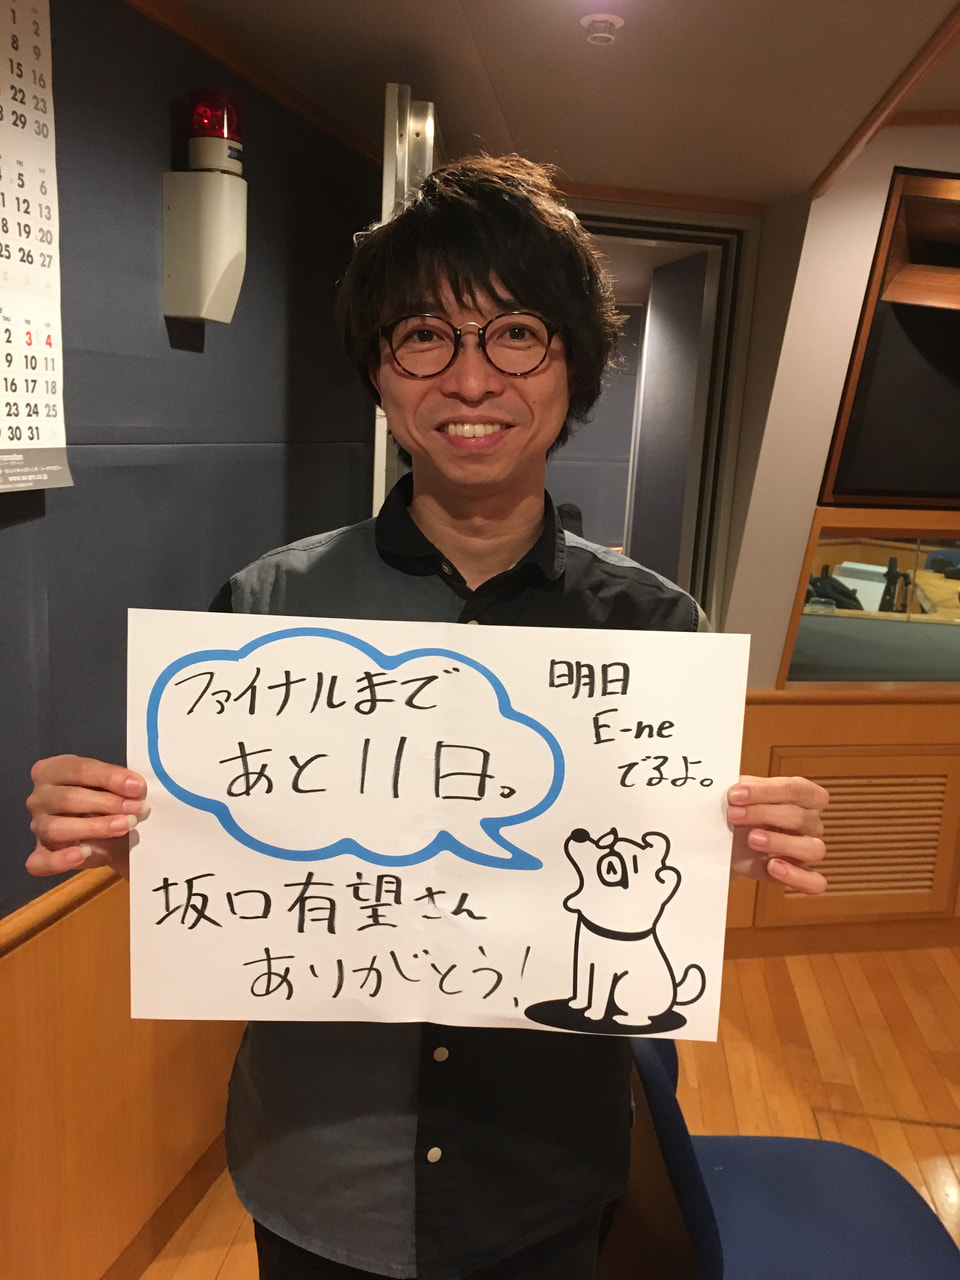 1 2
8 9
15 16
22 23
29 30
FRI SAT
5 6
12 13
18 19 20
25 26 27
THU FRI SAT
2 3 4
9 10 11
16 17 18
23 24 25
30 31
ファイナルまで
あと11日。
明日
E-ne
でるよ。
坂口有望さん
ありがとう!